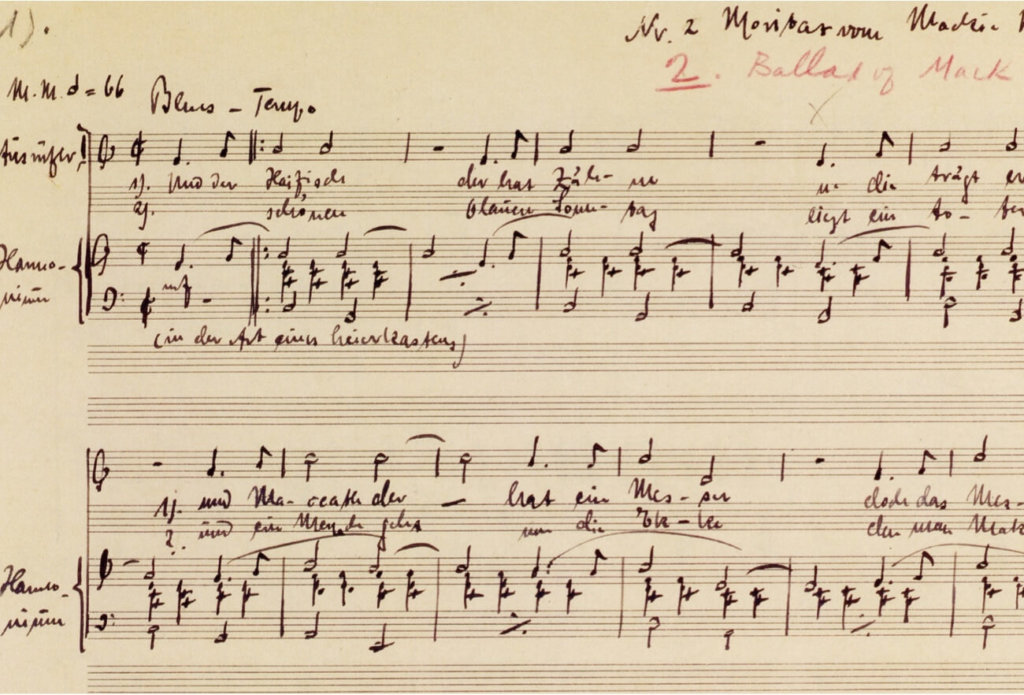 1).
Nr. 2 Moritat vom Mackie
2. Ballad of Mack
M.M. 𝅗𝅥 = 66 Blues-Tempo
Ausrufer
1). Und der Haifisch der hat Zäh-ne u- die trägt er
2). schönen blauen Sonn-tag liegt ein to-ter
Harmo-
nium
mf
(in der Art eines Leierkastens)
1). und Ma-ceath der — hat ein Mes-ser doch das Mes-
2. und ein Mensch geht um die Ek-ke den man Mak
Harmo-
nium